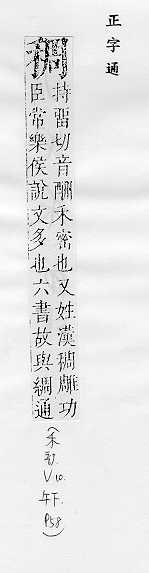 正字通
稠
持畱切音酬禾密也又姓漢稠雕功
臣常樂侯說文多也六書故與綢通
(禾部.
V10.
午下.
P58)